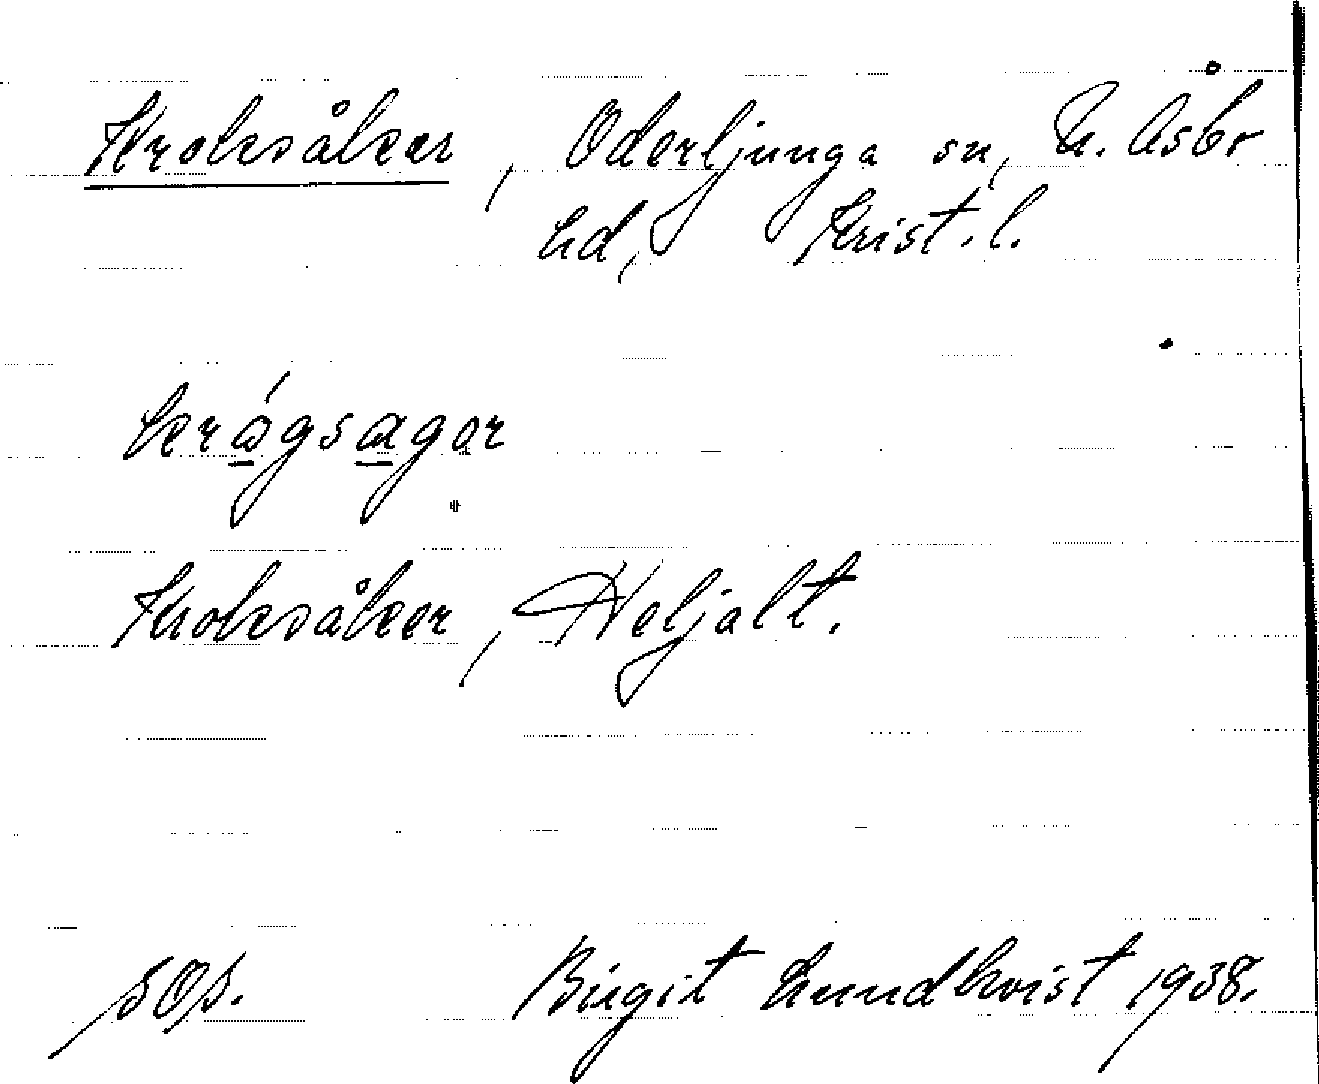 Kroksåker, Oderljunga sn, N. Åsbo
hd, Krist. l.
krǻgsagor
Kroksåker, Heljalt.
SOS. Birgit Lundkvist 1938.